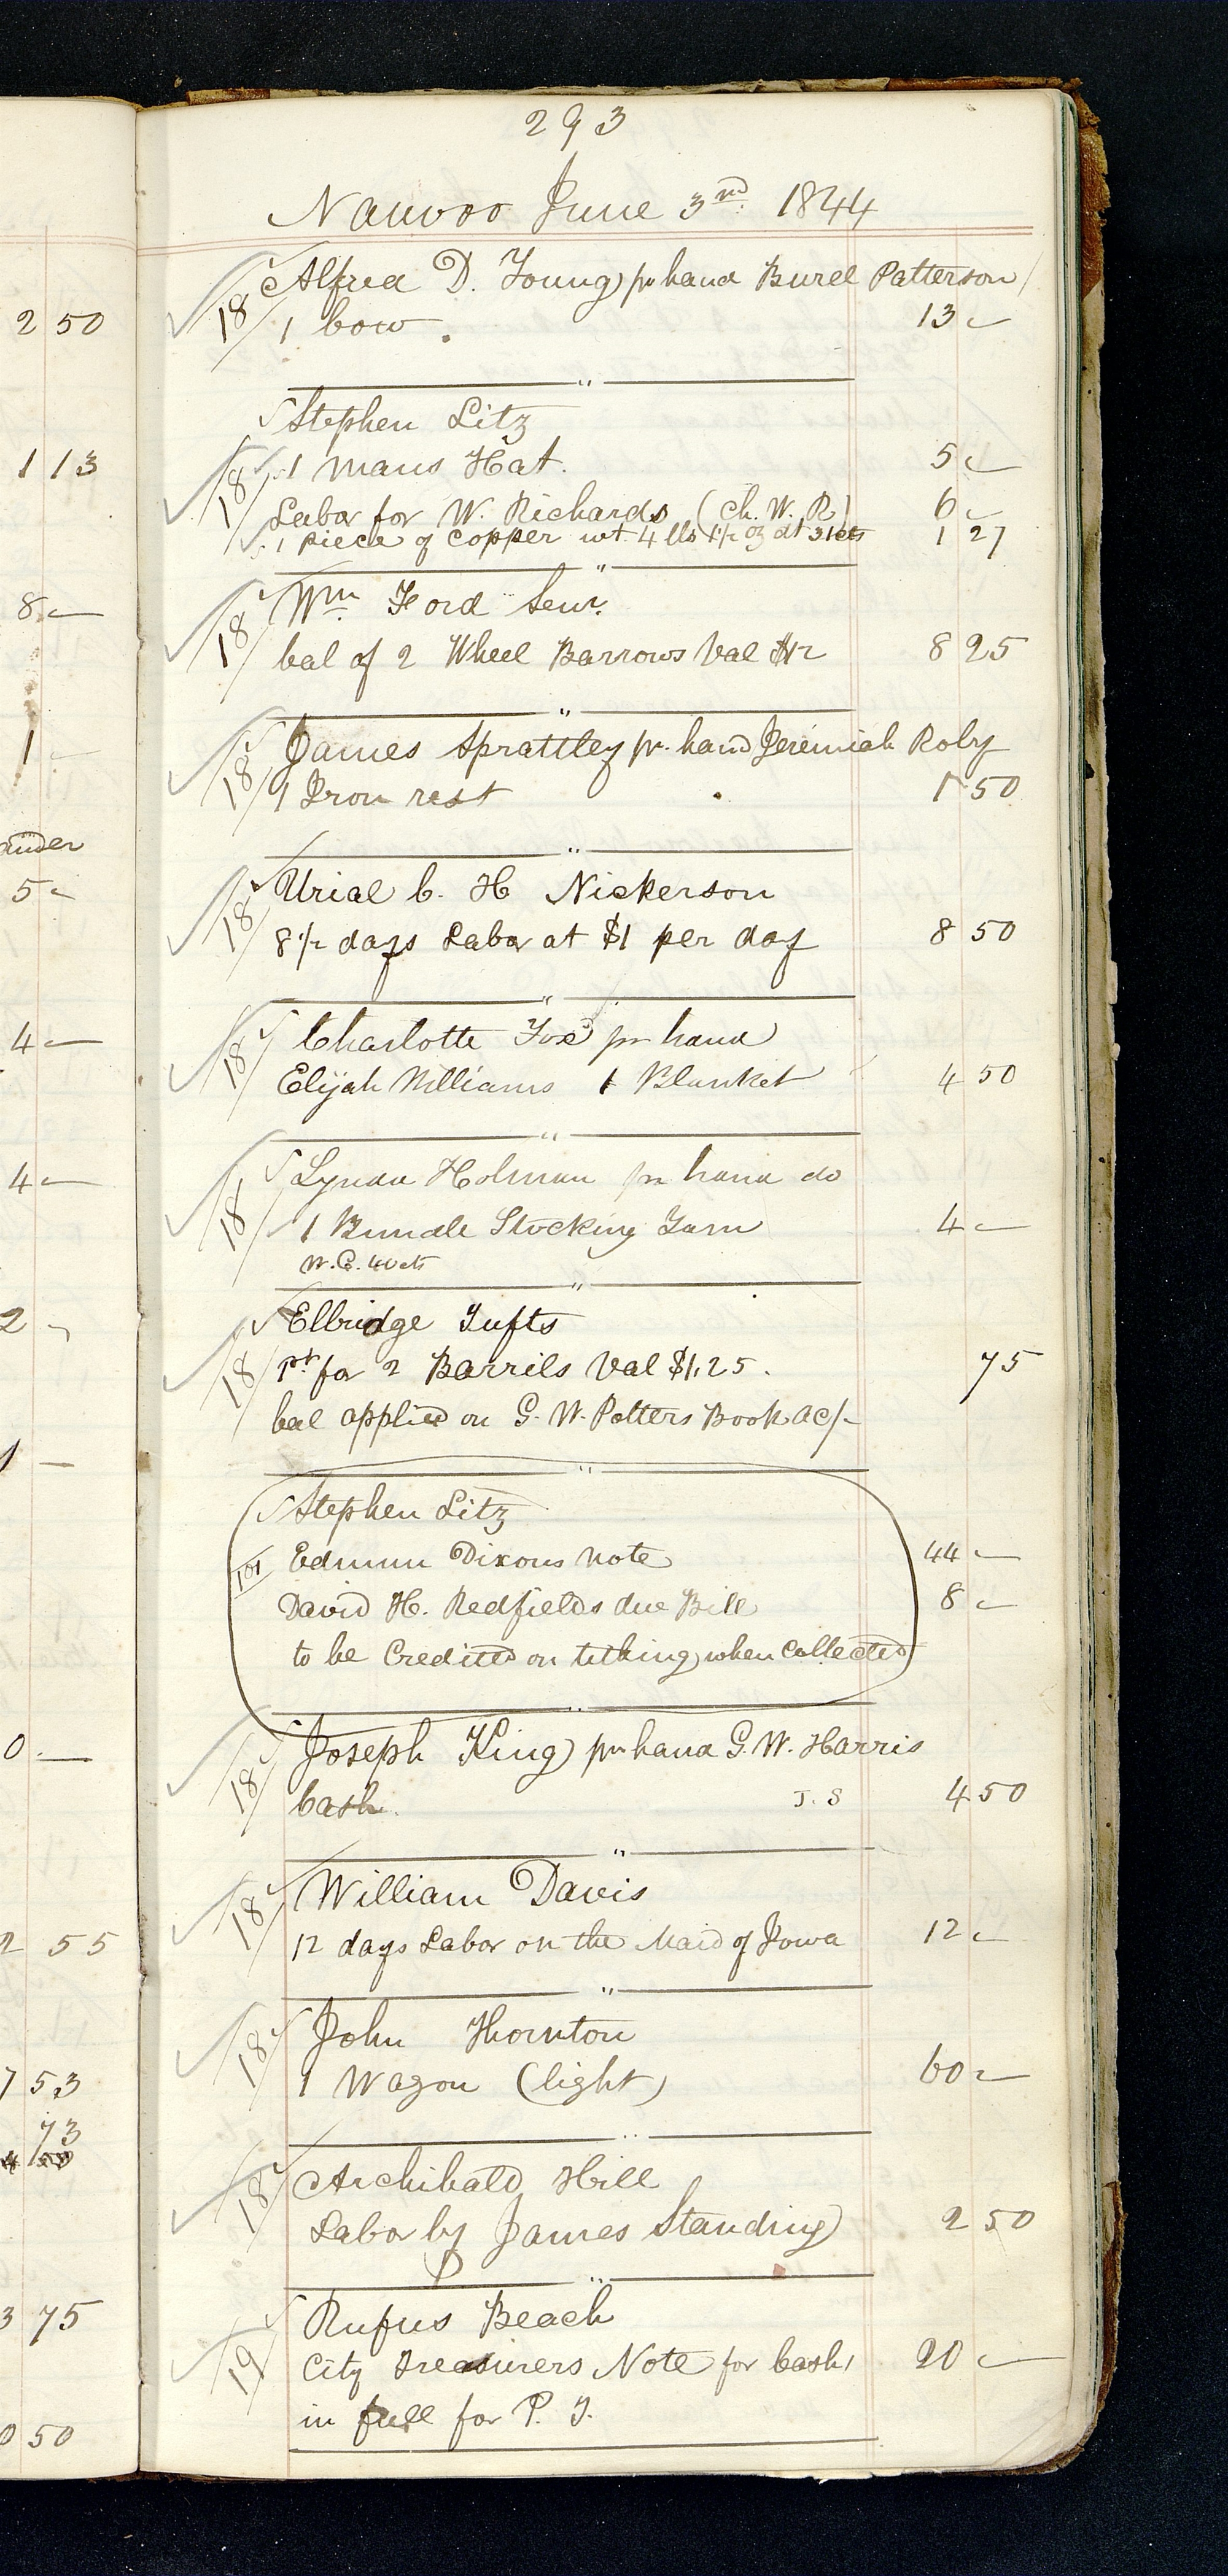 293
Nauvoo June 3rd. 1844
2 50
18 Alfred D. Young pr hand Burel Patterson
1 bow. 13 —
Stephen Litz
1 13
18 1 mans Hat. 5 —
Labor for W. Richards (Ch. W. R) 6 —
1 piece of Copper wt 4 lbs 1 1/2 oz at 31cts 1 27
8 —
18 Wm. Ford Senr.
bal of 2 Wheel Barrows Val $12 8 25
1 —
18 James Sprattley pr. hand Jeremiah Roby
1 Iron rest 1 50
ander
5 —
18 Urial C. H Nickerson
8 1/2 days Labor at $1 per day 8 50
4 —
18 Charlotte Fox pr hand
Elijah Williams 1 Blanket 4 50
4 —
18 Lynda Holman pr hand do
1 Bundle Stocking Yarn 4 —
W.C. 40cts
2 —
18 Elbridge Tufts
Pt for 2 Barrils Val $1,25. 75
bal applied on G. W. Potters Book ac/-
1 —
Stephen Litz
101 Edmun Dixons note 44 —
David H. Redfields due Bill 8 —
to be Credited on tithing when Collected
0 —
18 Joseph King pr hand G. W. Harris
Cash. J. S 4 50
18 William Davis
2 55
12 days Labor on the Maid of Iowa 12 —
18 John Thornton
7 53
1 Wagon (light) 60 —
73
18 Archibald Hill
Labor by James Standing 2 50
3 75
19 Rufus Beach
City Treasurers Note for Cash 20 —
in full for P. T.
0 50